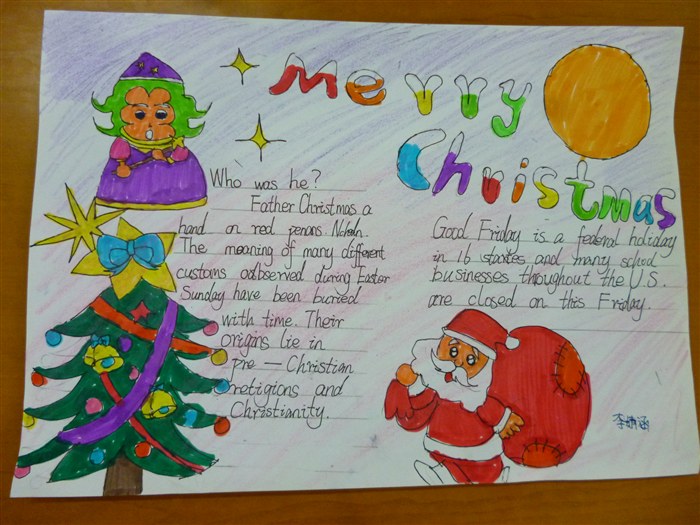 Merry
Christmas
Who was he?
Father Christmas a
hand on red penans
The meaning of many different
customs oabserved during Easter
Sunday have been buried
with time. Their
origins lie in
pre — Christian
religions and
Christianity.
Good Friday is a federal holiday
in 16 staates and many school
businesses thoughout the U.S.
are closed on this Friday.